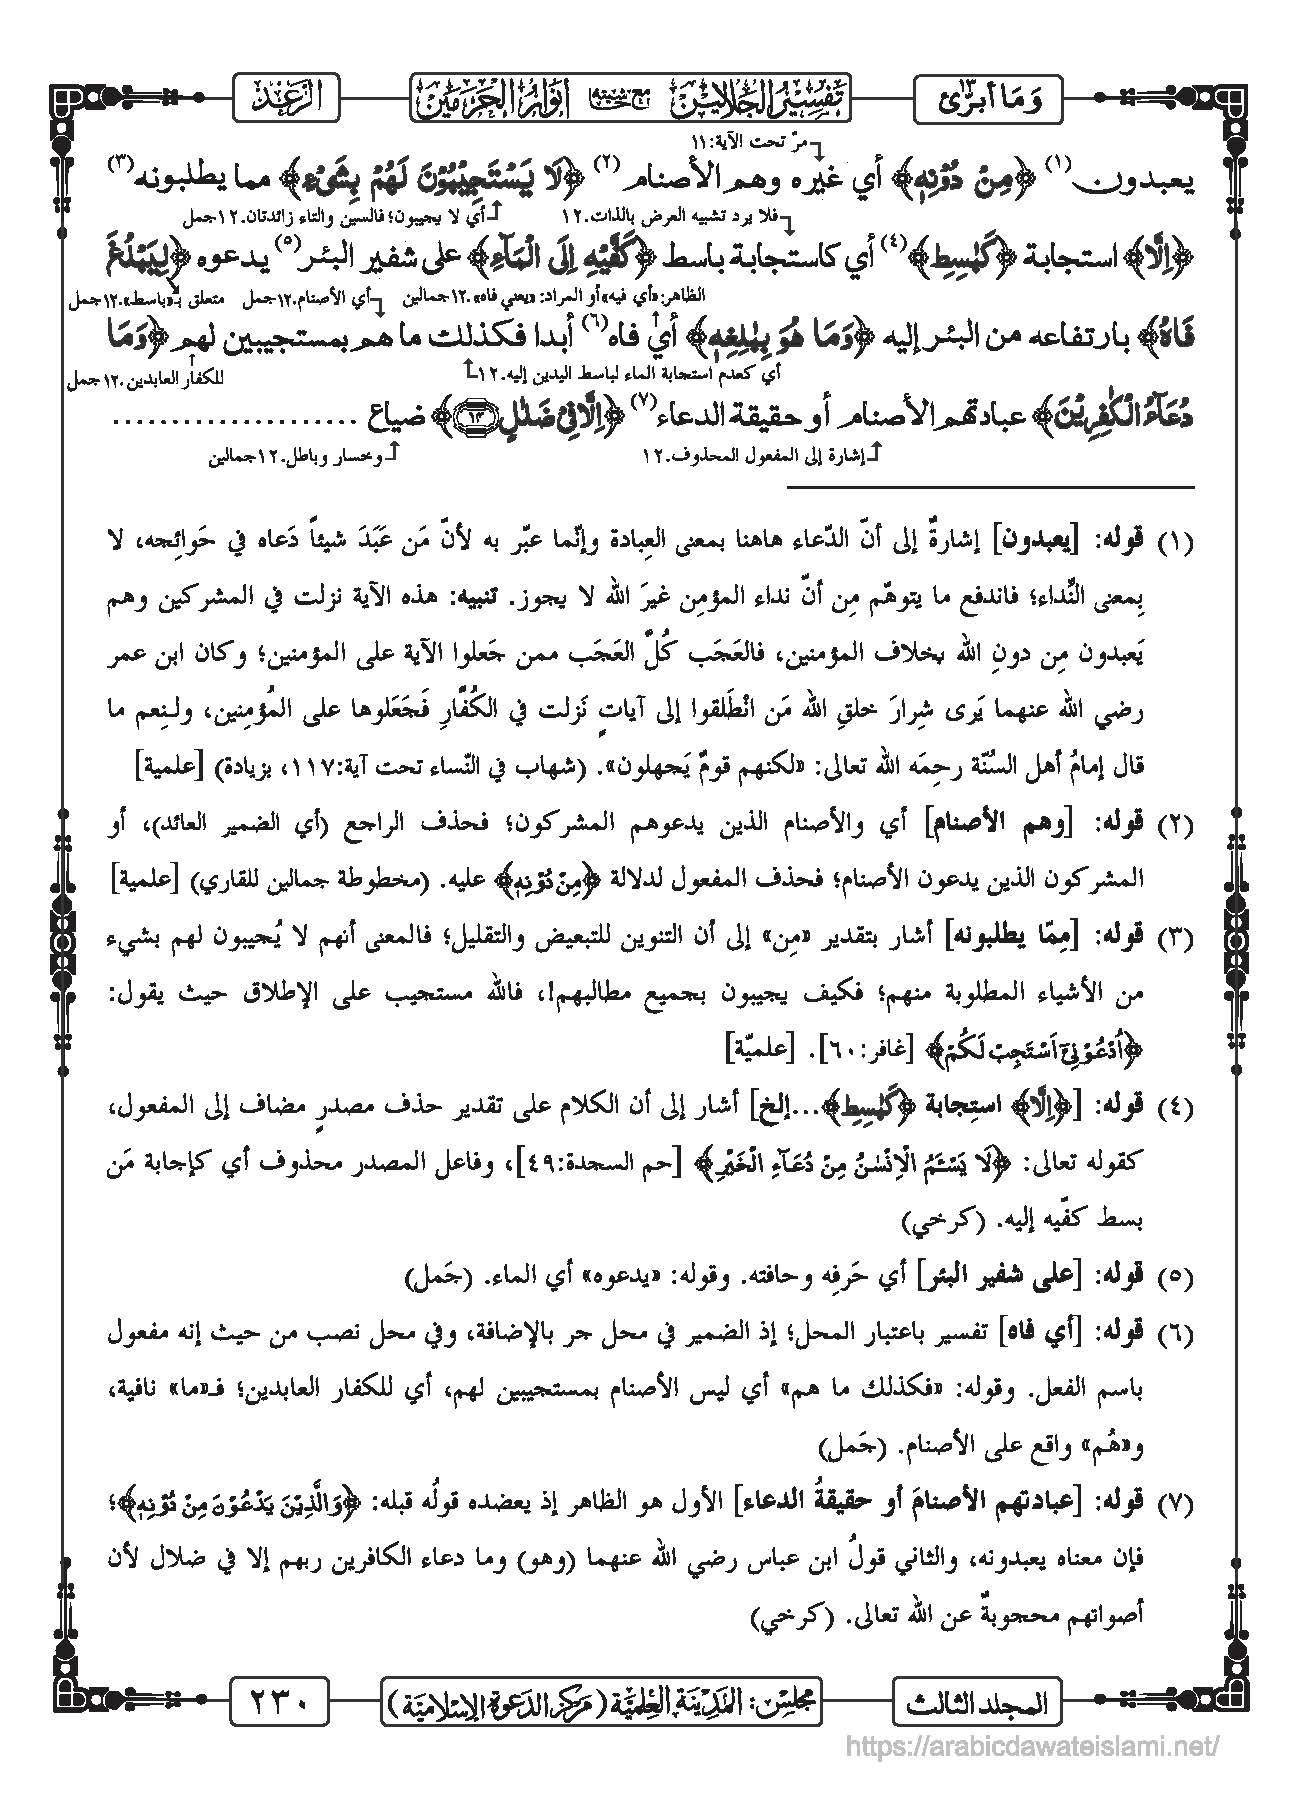 وَمَا أُبَرِّئُ ١٣
تفسير الجلالين مع حاشيته أنوار الحرمين
الرَّعْد
مرّ تحت الآية:١١
يعبدون(١) ﴿مِنْ دُوْنِهٖ﴾ أي غيره وهم الأصنام(٢) ﴿لَا يَسْتَجِيْبُوْنَ لَهُمْ بِشَيْءٍ﴾ مما يطلبونه(٣)
فلا يرد تشبيه العرض بالذات.١٢
أي لا يجيبون؛ فالسين والتاء زائدتان.١٢جمل
﴿اِلَّا﴾ استجابة ﴿كَبَاسِطِ﴾(٤) أي كاستجابة باسط ﴿كَفَّيْهِ اِلَى الْمَآءِ﴾ على شفير البئر(٥) يدعوه ﴿لِيَبْلُغَ
الظاهر: «أي فيه» أو المراد: «يعني فاه».١٢جمالين
أي الأصنام.١٢جمل
متعلق بـ«باسط».١٢جمل
فَاهُ﴾ بارتفاعه من البئر إليه ﴿وَمَا هُوَ بِبَالِغِهٖ﴾ أي فاه(٦) أبدا فكذلك ما هم بمستجيبين لهم ﴿وَمَا
أي كعدم استجابة الماء لباسط اليدين إليه.١٢
للكفار العابدين.١٢جمل
دُعَآءُ الْكٰفِرِيْنَ﴾ عبادتهم الأصنام أو حقيقة الدعاء(٧) ﴿اِلَّا فِيْ ضَلٰلٍ ١٤﴾ ضياع .....................
إشارة إلى المفعول المحذوف.١٢
وخسار وباطل.١٢جمالين
(١) قوله: [يعبدون] إشارةٌ إلى أنّ الدّعاء هاهنا بمعنى العِبادة وإنّما عبّر به لأنّ مَن عَبَدَ شيئاً دَعاه في حَوائِجه، لا
بِمعنى النِّداء؛ فاندفع ما يتوهّم مِن أنّ نداء المؤمِن غيرَ الله لا يجوز. تنبيه: هذه الآية نزلت في المشركين وهم
يَعبدون مِن دونِ الله بخلاف المؤمنين، فالعَجَب كُلّ العَجَب ممن جَعلوا الآية على المؤمنين؛ وكان ابن عمر
رضي الله عنهما يَرى شِرارَ خلقِ الله مَن انْطَلقوا إلى آياتٍ نَزلت في الكُفَّارِ فَجَعَلوها على المُؤمِنين، ولـنِعم ما
قال إمامُ أهل السُنّة رحِمَه الله تعالى: «لكنهم قومٌ يَجهلون». (شهاب في النّساء تحت آية:١١٧، بزيادة) [علمية]
(٢) قوله: [وهم الأصنام] أي والأصنام الذين يدعوهم المشركون؛ فحذف الراجع (أي الضمير العائد)، أو
المشركون الذين يدعون الأصنام؛ فحذف المفعول لدلالة ﴿مِنْ دُوْنِهٖ﴾ عليه. (مخطوطة جمالين للقاري) [علمية]
(٣) قوله: [مِمّا يطلبونه] أشار بتقدير «مِن» إلى أن التنوين للتبعيض والتقليل؛ فالمعنى أنهم لا يُجيبون لهم بشيء
من الأشياء المطلوبة منهم؛ فكيف يجيبون بجميع مطالبهم!، فالله مستجيب على الإطلاق حيث يقول:
﴿اُدْعُوْنِيْٓ اَسْتَجِبْ لَكُمْ﴾ [غافر:٦٠]. [علميّة]
(٤) قوله: [﴿اِلَّا﴾ استِجابة ﴿كَبَاسِطِ﴾...إلخ] أشار إلى أن الكلام على تقدير حذف مصدرٍ مضاف إلى المفعول،
كقوله تعالى: ﴿لَا يَسْـَٔمُ الْاِنْسٰنُ مِنْ دُعَآءِ الْخَيْرِ﴾ [حم السجدة:٤٩]، وفاعل المصدر محذوف أي كإجابة مَن
بسط كفّيه إليه. (كرخي)
(٥) قوله: [على شفير البئر] أي حَرفِه وحافته. وقوله: «يدعوه» أي الماء. (جَمل)
(٦) قوله: [أي فاه] تفسير باعتبار المحل؛ إذ الضمير في محل جر بالإضافة، وفي محل نصب من حيث إنه مفعول
باسم الفعل. وقوله: «فكذلك ما هم» أي ليس الأصنام بمستجيبين لهم، أي للكفار العابدين؛ فـ«ما» نافية،
و«هُم» واقع على الأصنام. (جَمل)
(٧) قوله: [عبادتهم الأصنامَ أو حقيقةُ الدعاء] الأول هو الظاهر إذ يعضده قولُه قبله: ﴿وَالَّذِيْنَ يَدْعُوْنَ مِنْ دُوْنِهٖ﴾؛
فإن معناه يعبدونه، والثاني قولُ ابن عباس رضي الله عنهما (وهو) وما دعاء الكافرين ربهم إلا في ضلال لأن
أصواتهم محجوبةٌ عن الله تعالى. (كرخي)
المجلد الثالث
مجلس: المدينة العلمية (مركز الدعوة الإسلامية)
٢٣٠
https://arabicdawateislami.net/